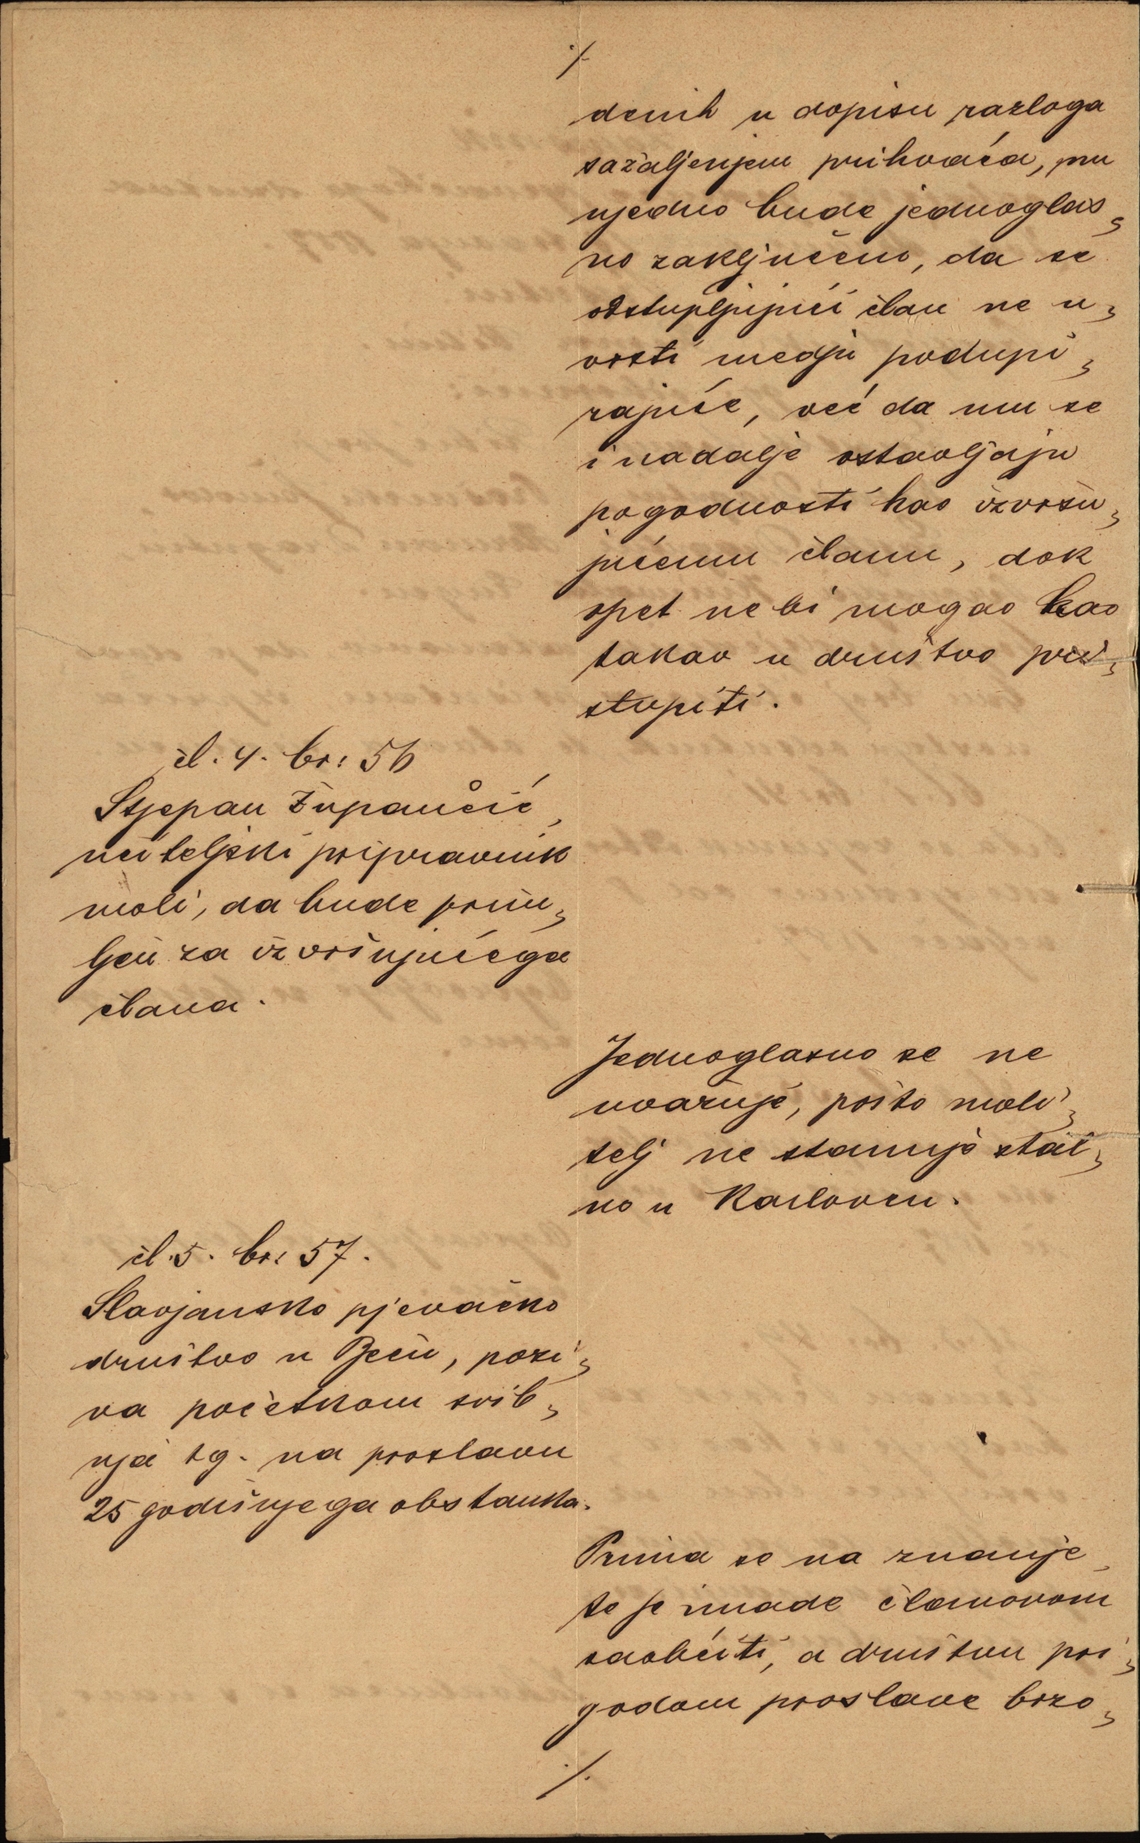 ./.
denih u dopisu razloga
sažaljenjem prihvaća, mu
ujedno bude jednoglas„
no zaključeno, da se
odstupljujući član ne u„
vrsti medju podupi„
rajuće, već da mu se
i nadalje ostavljaju
pogodnosti kao izvršu„
jućemu članu, dok
opet nebi mogao kao
takav u društvo pri„
stupiti.
čl. 4. br: 56
Stjepan Župančić,
učiteljski pripravnik
moli, da bude primi„
ljen za izvršujućega
člana.
Jednoglasno se ne
uvažuje, pošto moli„
telj ne stanuje stal„
no u Karlovcu.
čl. 5. br: 57.
Slavjansko pjevačko
društvo u Beču, pozi„
va početkom svib„
nja tg. na proslavu
25 godišnjega obstanka.
Prima se na znanje,
te je imade članovom
saobćiti, a društvu pri„
godom proslave brzo„
./.